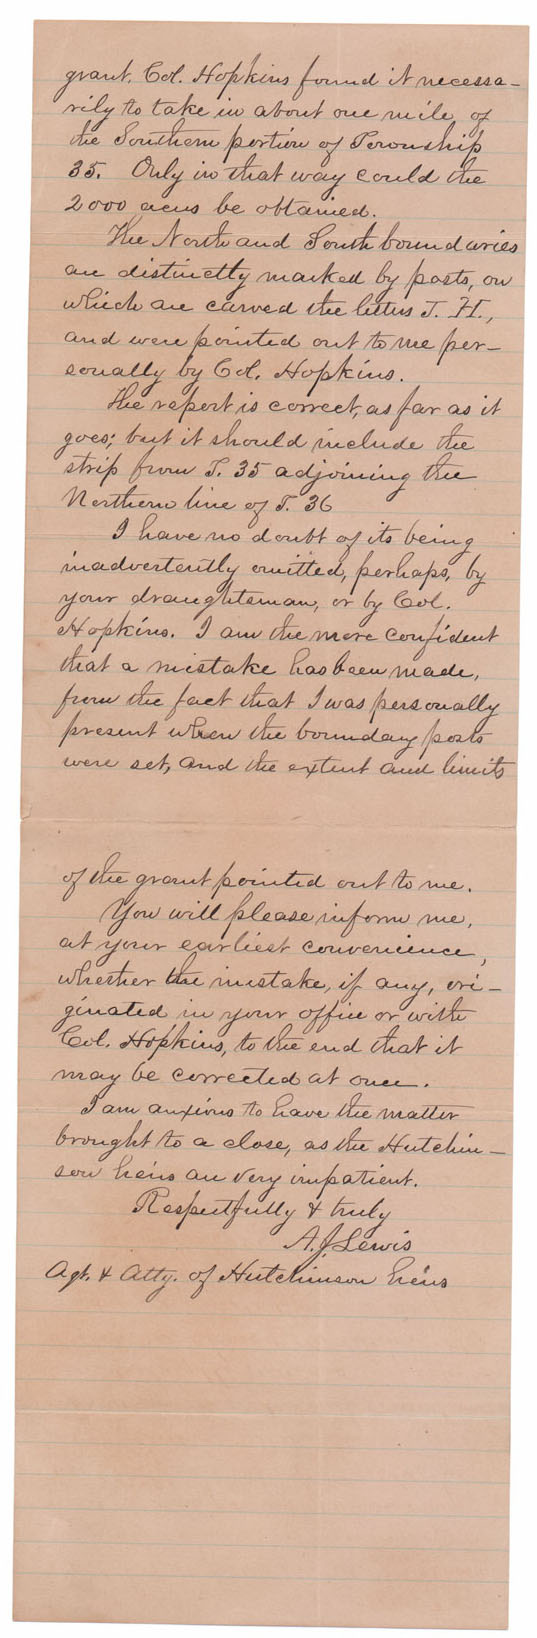 grant. Col. Hopkins found it necessa-
rily to take in about one mile of
the Southern portion of Township
35. Only in that way could the
2000 acres be obtained.
The North and South boundaries
are distinctly marked by posts, on
which are carved the letters J. H.,
and were pointed out to me per-
sonally by Col. Hopkins.
The report is correct, as far as it
goes; but it should include the
strip from T. 35 adjoining the
Northern line of T. 36
I have no doubt of its being
inadvertently omitted, perhaps, by
your draughtsman, or by Col.
Hopkins. I am the more confident
that a mistake has been made,
from the fact that I was personally
present when the boundary posts
were set, and the extent and limits
of the grant pointed out to me.
You will please inform me,
at your earliest convenience,
whether the mistake, if any, ori-
ginated in your office or with
Col. Hopkins, to the end that it
may be corrected at once.
I am anxious to have the matter
brought to a close, as the Hutchin-
son heirs are very impatient.
Respectfully & truly
A. J. Lewis
Agt. & Atty. of Hutchinson heirs